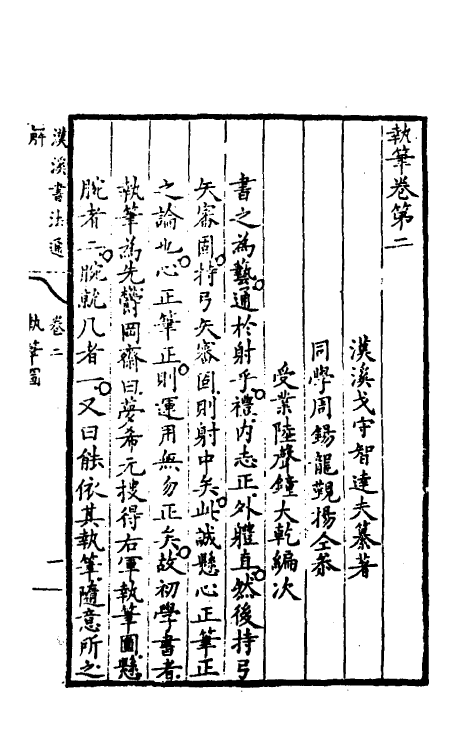 執筆卷第二
漢溪戈守智達夫纂著
同學周錫龍觀揚仝叅
受業陸聲鐘大乾編次
書之為藝通於射乎禮內志正外體直然後持弓
矢審固持弓矢審固則射中矣此誠懸心正筆正
之論也心正筆正則運用無勿正矣故初學書者
執筆為先鬱岡齋曰夢希元搜得右軍執筆圖懸
腕者二腕就几者一又曰能依其執筆隨意所之
漢溪書法通解
卷二
執筆圖
一